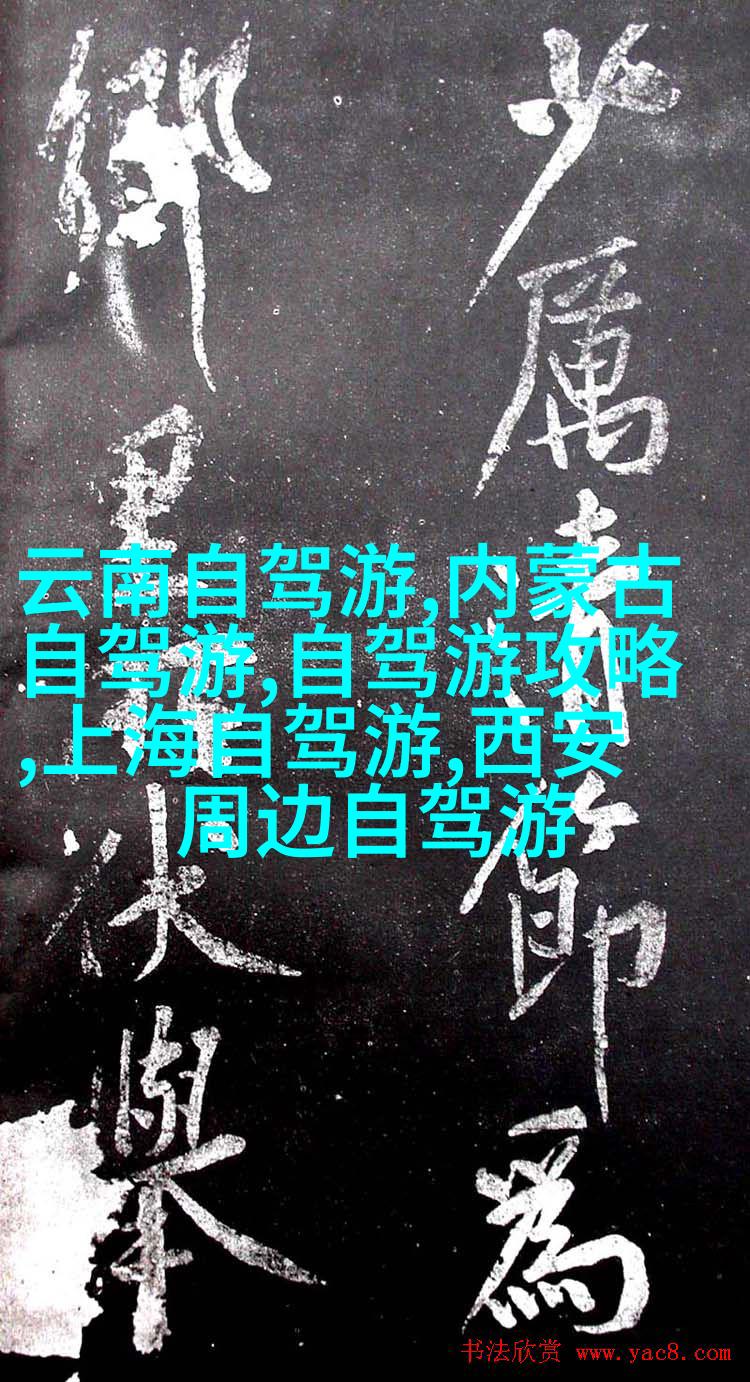 少厲清節為
鄉里所伏舉
云南自驾游,内蒙古
自驾游,自驾游攻略
,上海自驾游,西安
周边自驾游
书法欣赏 www.yac8.com